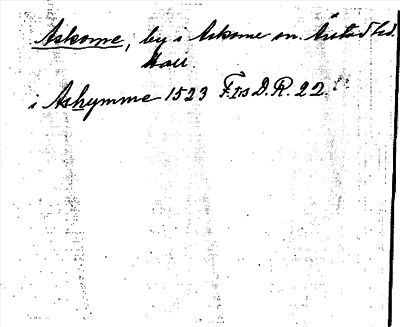 Askome, by i Askome sn. Årstad hd.
Hall
i Ashymme 1523 F.Is D.R. 22.